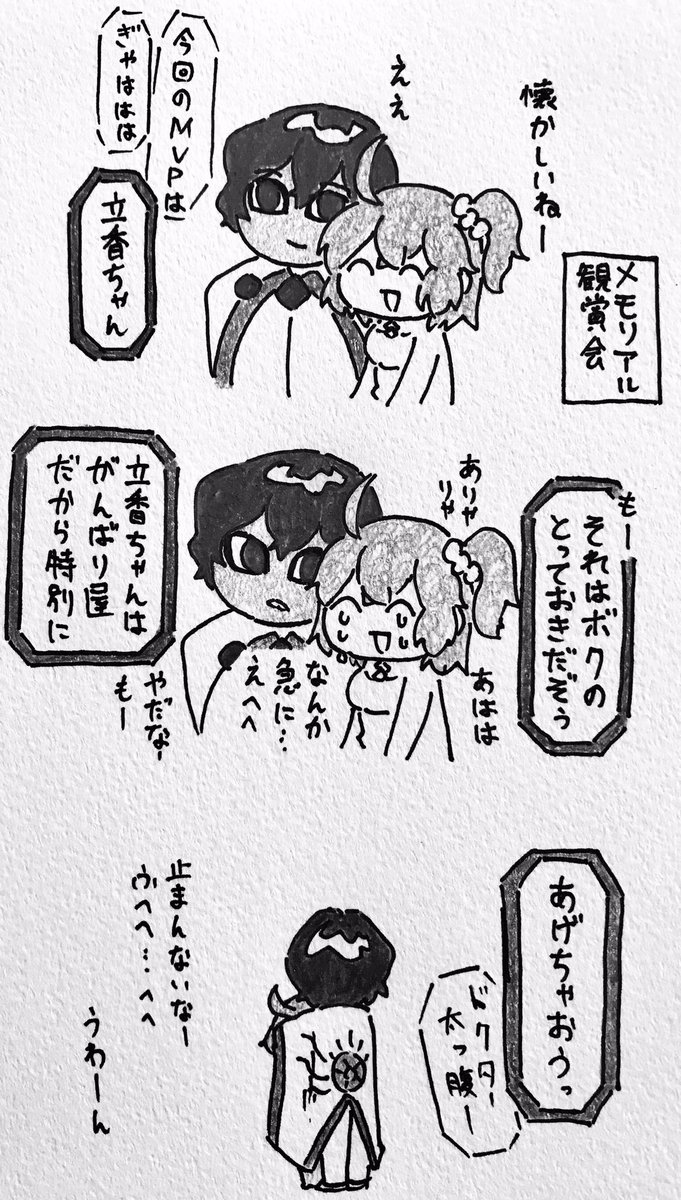 メモリアル
観賞会
懐かしいねー
ええ
今回のMVPは
ぎゃははは
立香ちゃん
もー
それはボクの
とっておきだぞぅ
ありゃ
りゃ
あはは
なんか
急に…
えへへ
立香ちゃんは
がんばり屋
だから特別に
やだなー
もー
あげちゃおうっ
ドクター
太っ腹ー
止まんないなー
ふへへ…へへ
うわーん